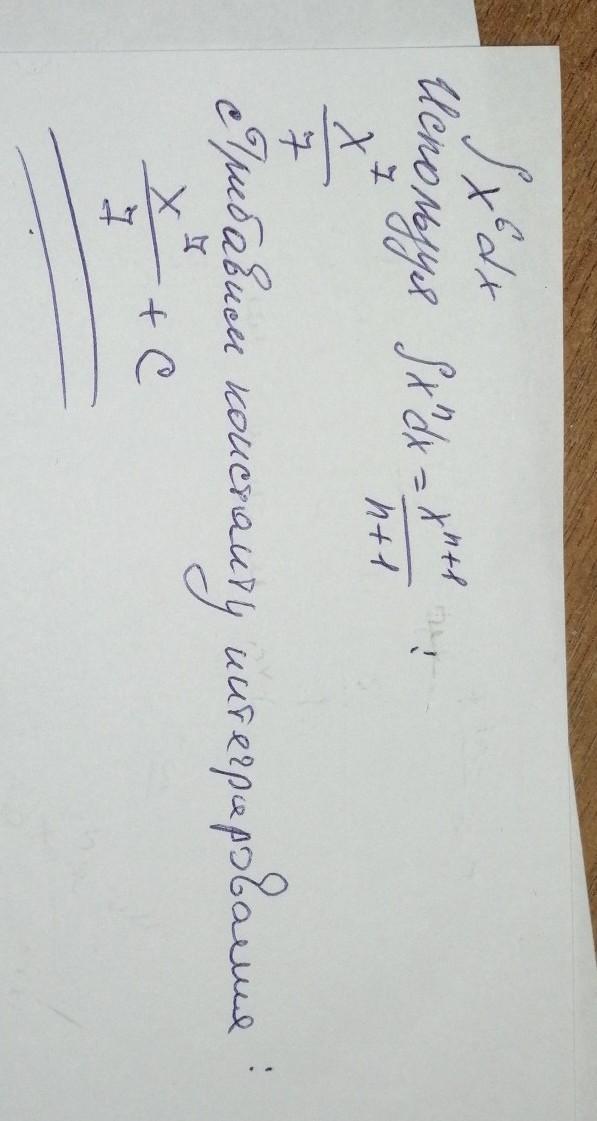 ∫ x⁶ dx
Используя ∫xⁿdx = xⁿ⁺¹/n+1 :
x⁷/7
Прибавим константу интегрирования :
x⁷/7 + C